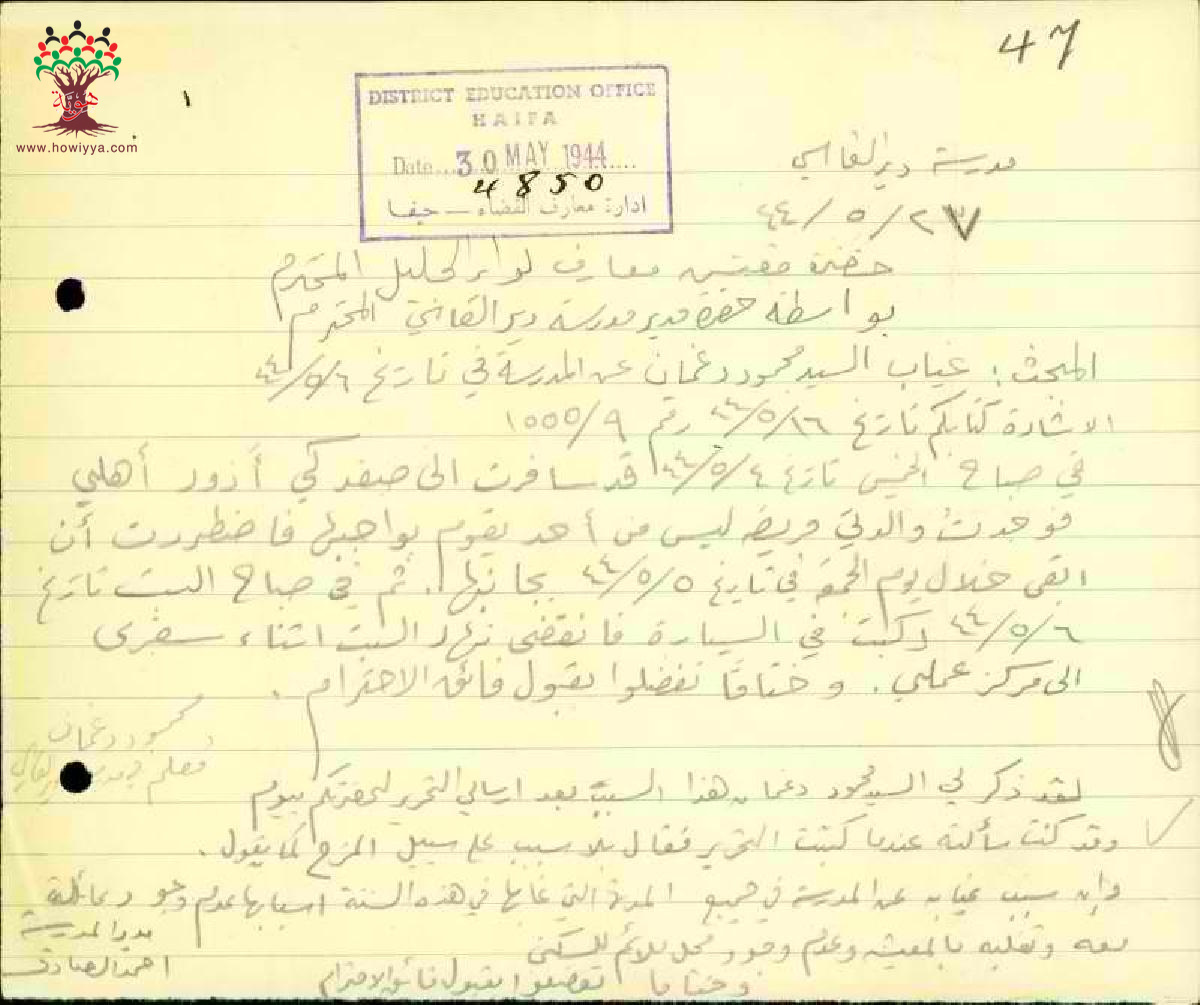 47
هوية
www.howiyya.com
DISTRICT EDUCATION OFFICE
HAIFA
Date...30 MAY 1944....
4850
ادارة معارف القضاء — حيفا
مدرسة دير القاسي
٤٤/٥/٢٧
حضرة مفتش معارف لواء الجليل المحترم
بواسطة حضرة مدير مدرسة دير القاسي المحترم
المبحث: غياب السيد محمود دغمان عن المدرسة في تاريخ ٤٤/٥/٦
الاشارة كتابكم تاريخ ٤٤/٥/١٦ رقم ١٠٥٥/٩
في صباح الخميس تاريخ ٤٤/٥/٤ قد سافرت الى صفد كي أزور أهلي
فوجدت والدتي مريضة ليس من أحد يقوم بواجبها فاضطررت أن
ابقى خلال يوم الجمعة في تاريخ ٤٤/٥/٥ بجانبها. ثم في صباح السبت تاريخ
٤٤/٥/٦ ركبت في السيارة فانقضى نهار السبت اثناء سفرى
الى مركز عملي. وختاما تفضلوا بقبول فائق الاحترام.
محمود دغمان
معلم في مدرسة دير القاسي
لقد ذكر لي السيد محمود دغمان هذا السبب بعد ارسالي التحرير لحضرتكم بيوم
وقد كنت سألته عندما كتبت التحرير فقال بلا سبب على سبيل المزح كما يقول.
وان سبب غيابه عن المدرسة في جميع المدة التي غابها في هذه السنة اسبابها عدم وجود عائلة
معه وتغلبه بالمعيشة وعدم وجود محل ملائم للسكنى
وختاما تفضلوا بقبول فائق الاحترام
مدير المدرسة
احمد الصادق